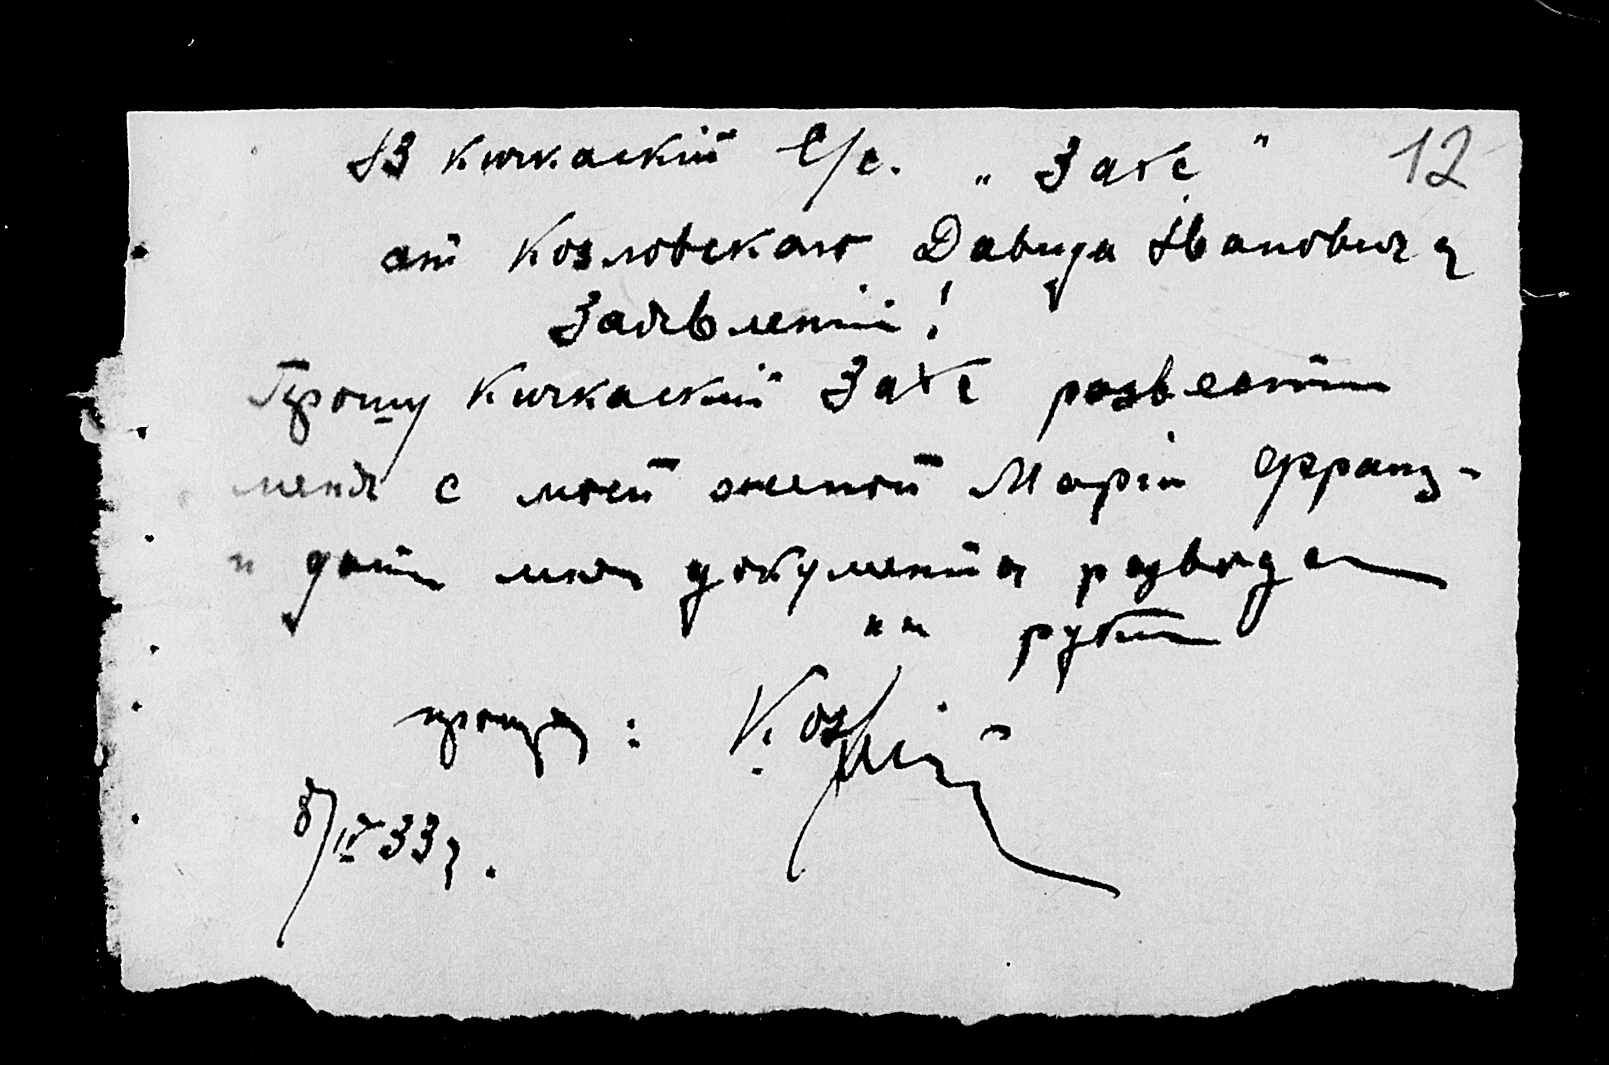 В Кичкаский С/с. „Загс" 12
от Козловскаго Давида Ивановича
Заявлений!
Прошу Кичкаский Загс розвести
меня с моей женой Марія Франц-
и дать мне документы розвода
на руки
прошу: Козлий
8/IV 33 г.